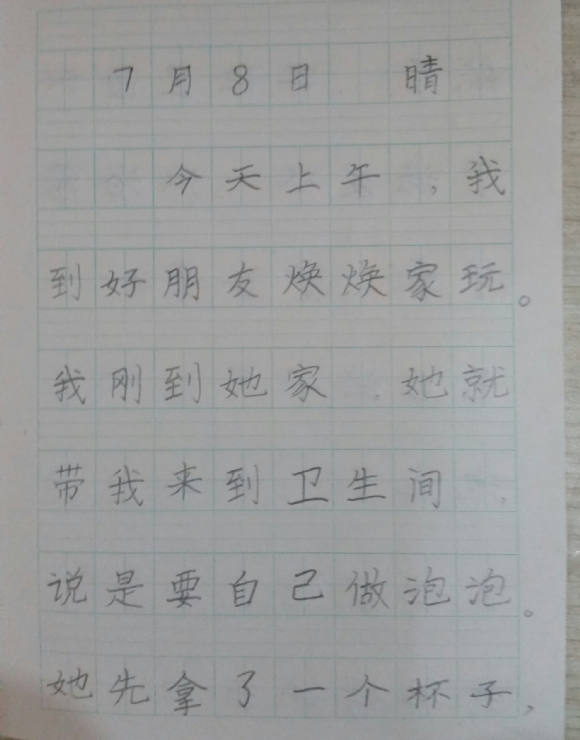 7月8日 晴
今天上午，我
到好朋友焕焕家玩。
我刚到她家，她就
带我来到卫生间，
说是要自己做泡泡。
她先拿了一个杯子，